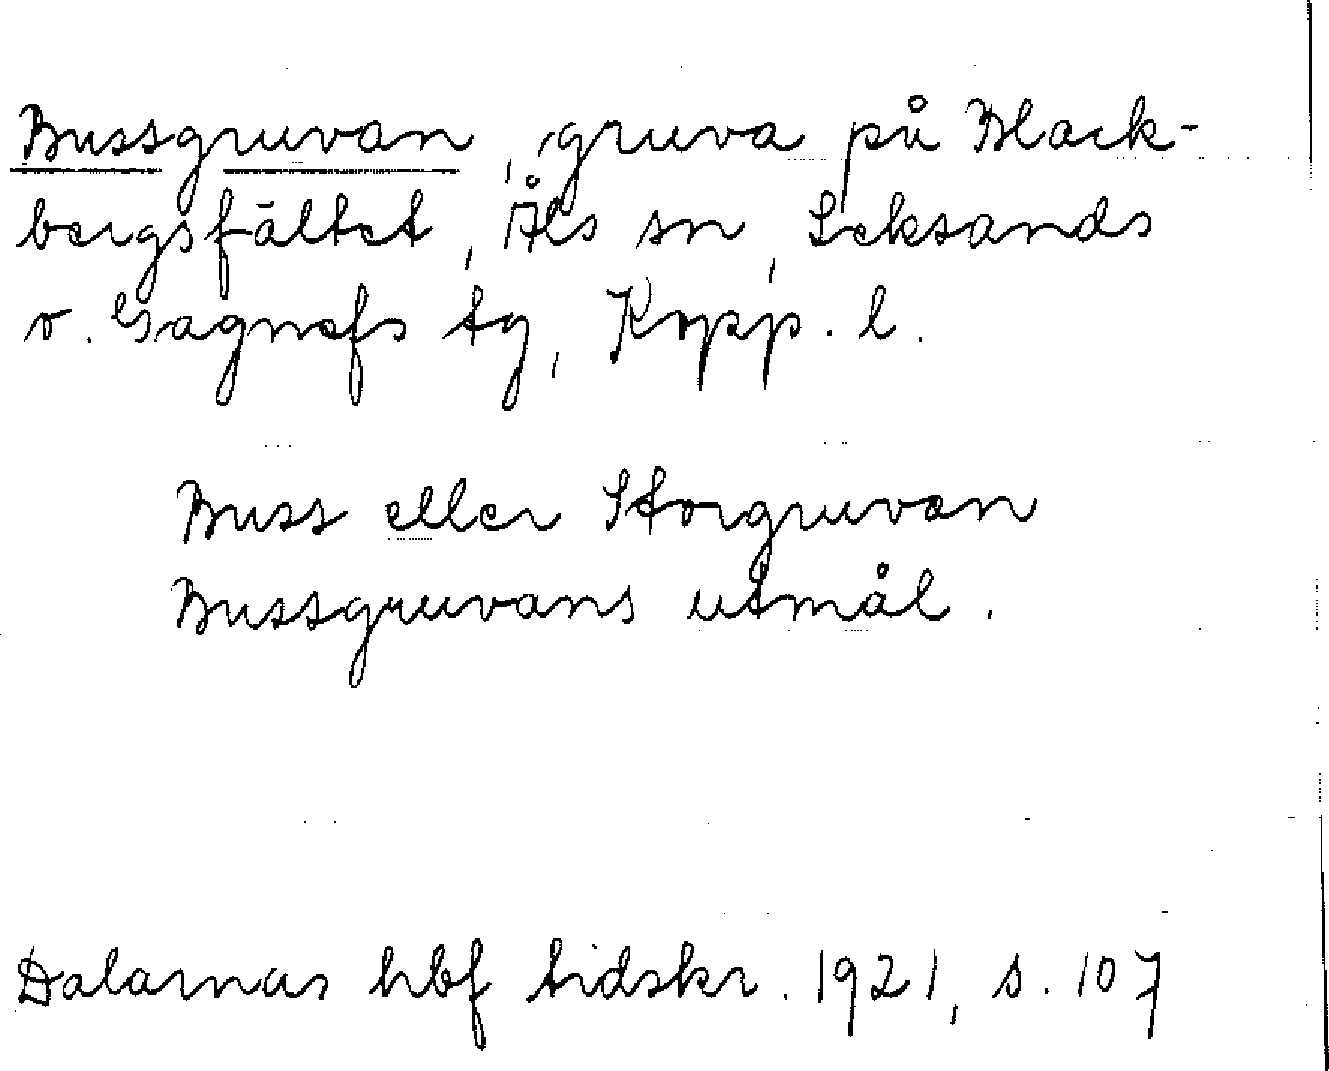 Bussgruvan, gruva på Black-
bergsfältet, Åls sn, Leksands
o. Gagnefs tg, Kopp. l.
Buss eller Storgruvan
Bussgruvans utmål.
Dalarnas hbf tidskr. 1921, s. 107